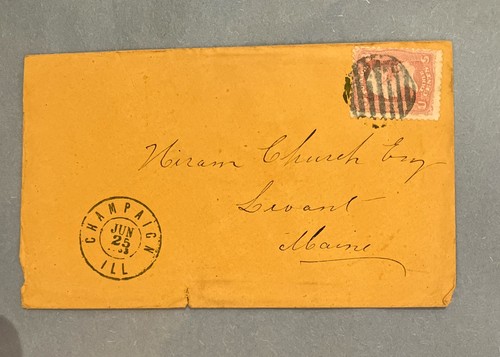 Hiram Church Esq
Levant
Maine
CHAMPAIGN
JUN
25
ILL